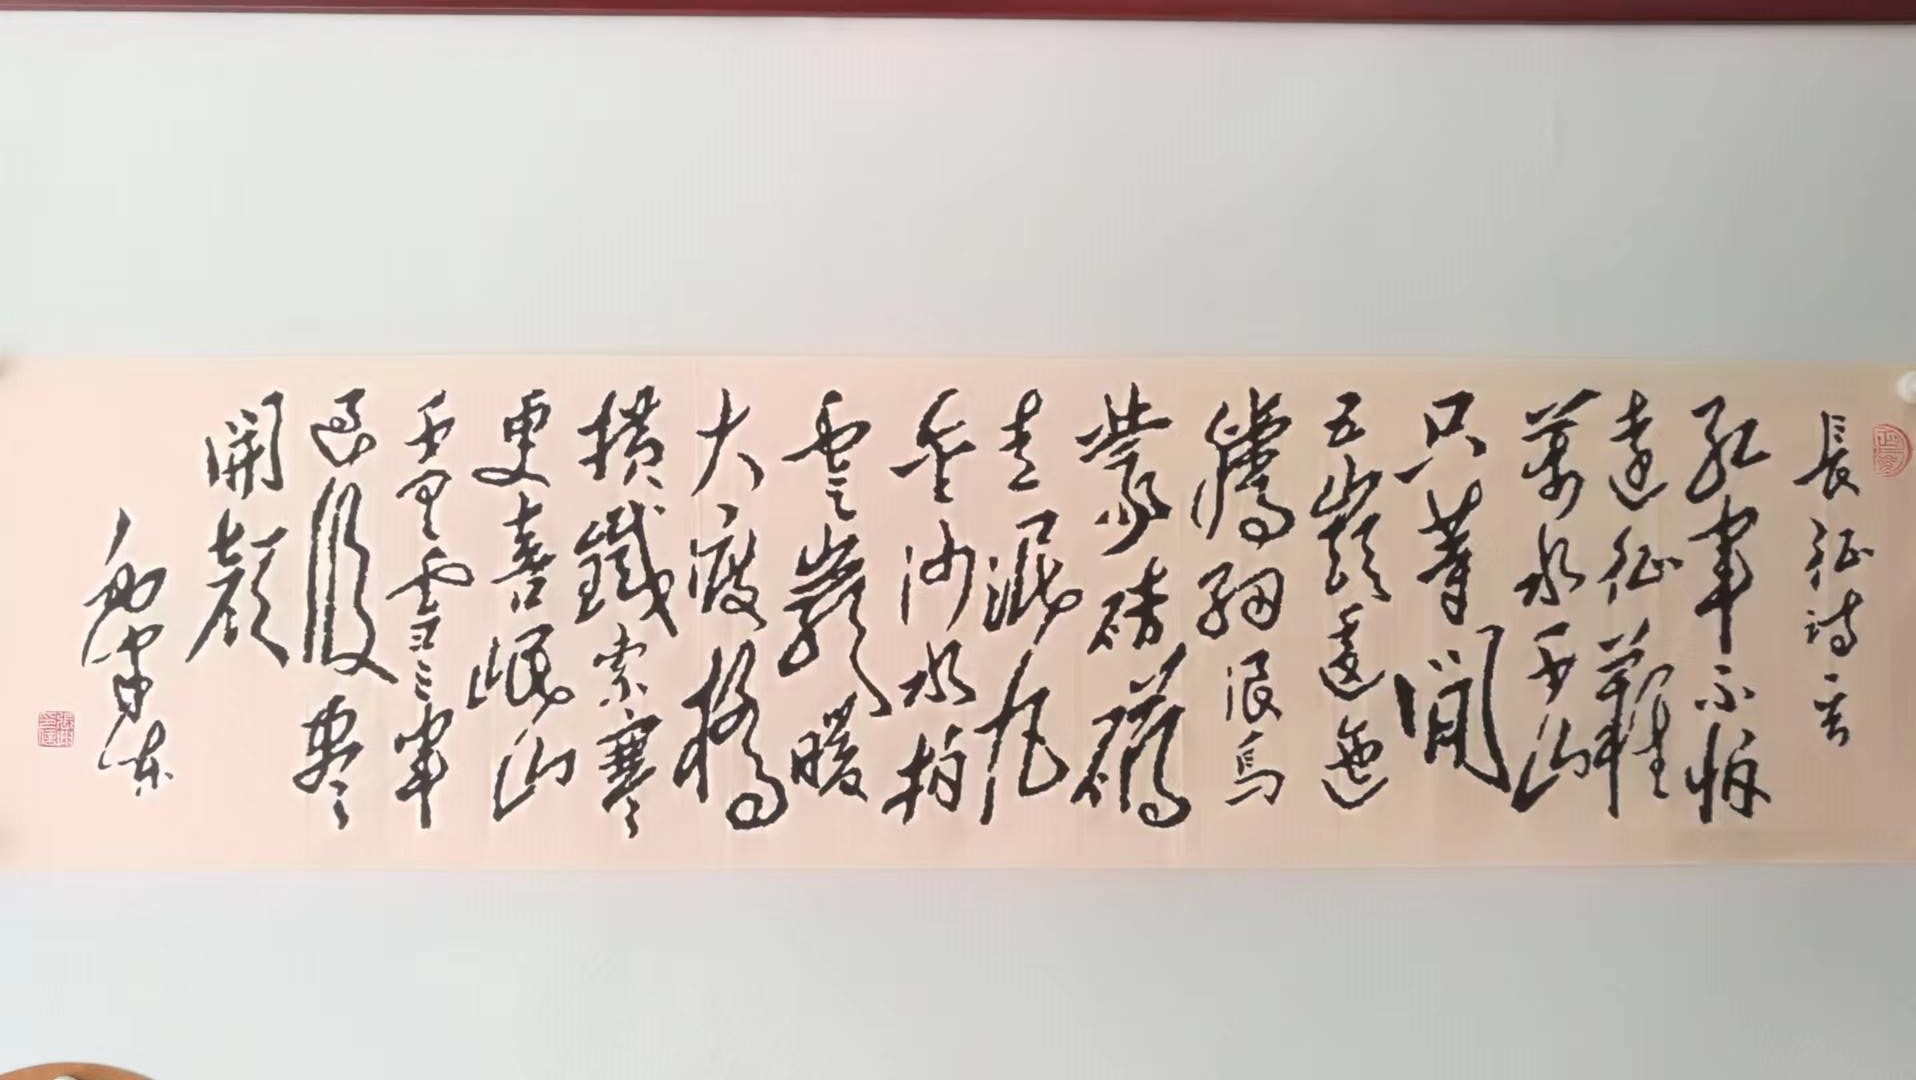 長征詩一首
紅軍不怕
遠征難
萬水千山
只等閒
五嶺逶迤
騰細浪烏
蒙磅礴
走泥丸
金沙水拍
雲巖暖
大渡橋
横鐵索寒
更喜岷山
千里雪三軍
過後盡
開顏
毛澤東